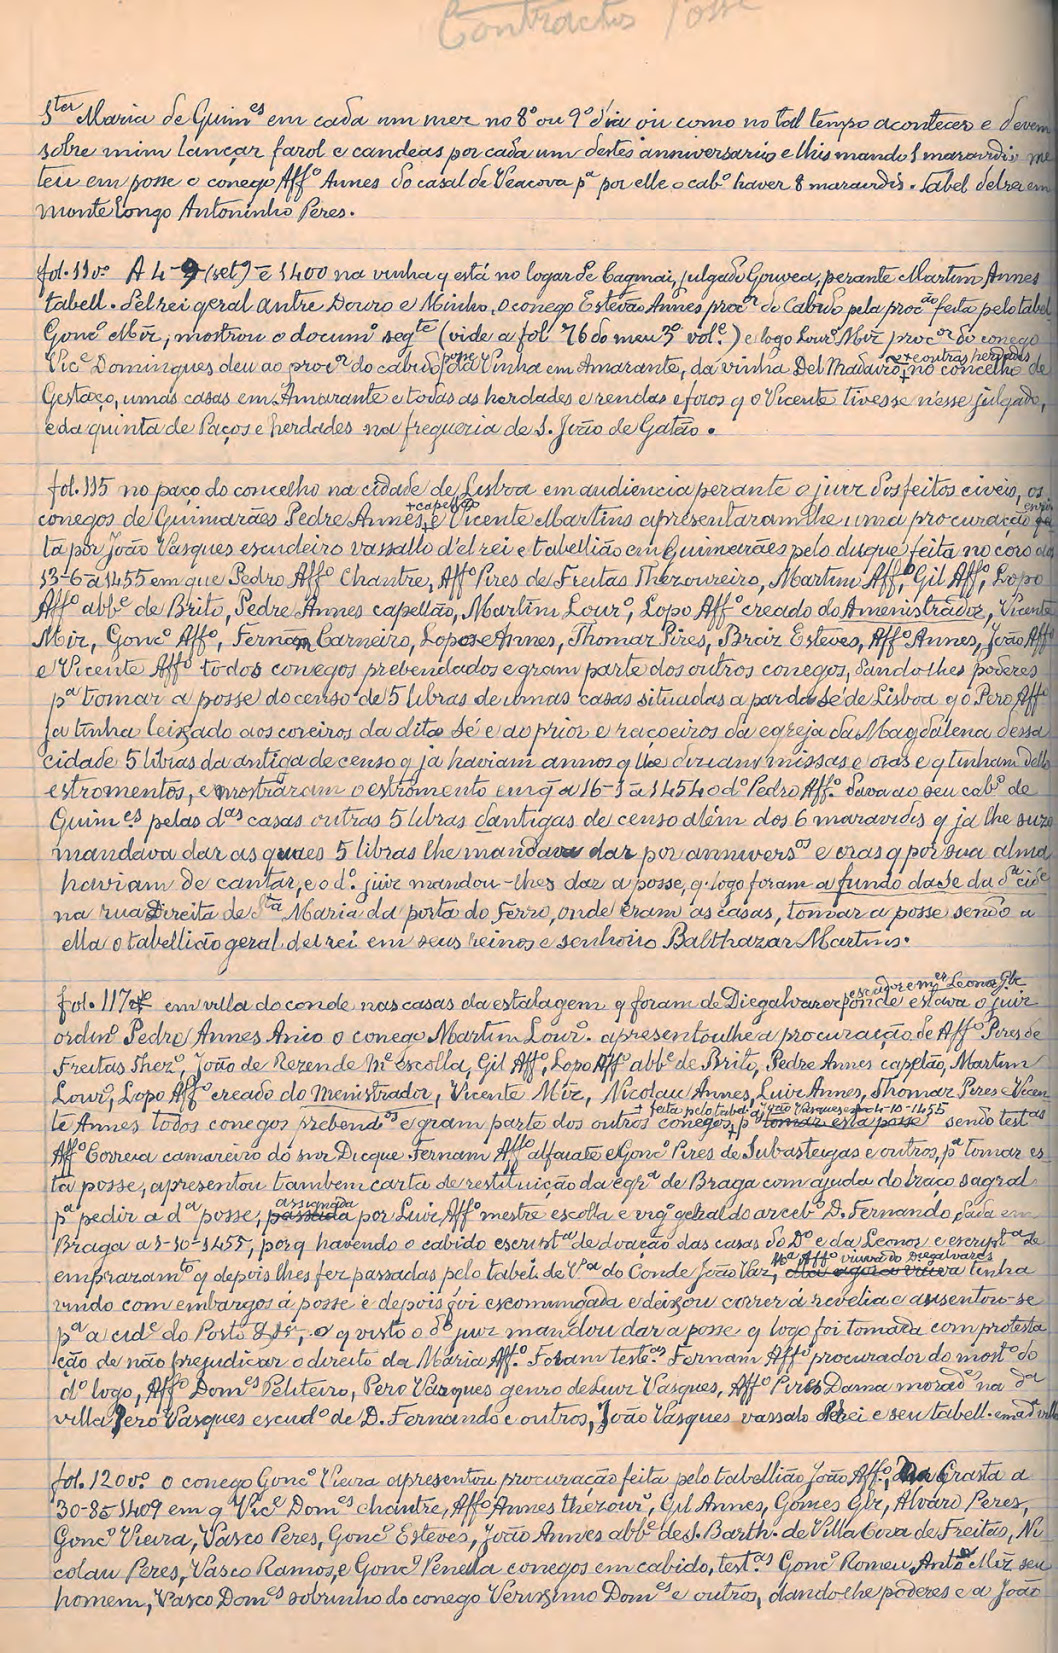 Contractos Posse
Sta Maria de Guimes em cada um mez no 8º ou 9º dia ou como no tal tempo acontecer e devem
sobre mim lançar farol e candeas por cada um destes anniversarios e lhis mando 1 maravidis me
teu em posse o conego Affº Annes do casal de Veacova pª por elle o cabº haver 8 maravidis. Tabel delrei em
Monte Longo Antoninho Peres.
fol. 110 vº A 4-9 (setº) e 1400 na vinha q está no logar de Cagmai, julgado Gouvea, perante Martim Annes
tabell. delrei geral antre Douro e Minho, o conego Estevão Annes procor do Cabido pela procão feita pelo tabel.
Goncº Miz, mostrou o documº segte (vide a fol 76 do meu 3º vole.) e logo Lourº Miz procor do conego
Vice Domingues deu ao procor do cabido posse da Vinha em Amarante, da vinha Del Madairo, + e outras herdades no concelho de
Gestaço, umas casas em Amarante e todas as herdades e rendas e foros q o Vicente tivesse n'esse julgado,
e da quinta de Paços e herdades na freguezia de S. João de Gatão.
fol. 115 no paço do concelho na cidade de Lisboa em audiencia perante o juiz dos feitos civeis, os
conegos de Guimarães Pedre Annes, + capellão e Vicente Martins apresentaram lhe uma procuração
ta por João Vasques escudeiro vassallo d'el rei e tabellião em Guimarães pelo duque feita no coro aos
13-6-ã 1455 em que Pedro Affº Chantre, Affº Pires de Freitas Thezoureiro, Martim Affº, Gil Affº, Lopo
Affº abbe de Brito, Pedre Annes capellão, Martim Lourº, Lopo Affº creado do Amenistrador, Vicente
Miz, Goncº Affº, Fernan Carneiro, Lopo Annes, Thomaz Pires, Braiz Esteves, Affº Annes, João Affº
e Vicente Affº todos conegos prebendados e gram parte dos outros conegos, dando-lhes poderes
pª tomar a posse do censo de 5 libras de umas casas situadas a par da Sé de Lisboa q o Pero Affº
ja tinha leixado aos coreiros da dita Sé e ao prior e raçoeiros da egreja da Magdalena dessa
cidade 5 libras da antiga de censo q ja haviam annos q lhe diziam missas e oras e q tinham dello
estromentos, e mostraram o estromento em q a 16-1 ã 1454 o dº Pedro Affº dava ao seu cabº de
Guimes pelas das casas outras 5 libras d'antigas de censo além dos 6 maravidis q ja lhe suzo
mandava dar as quaes 5 libras lhe mandava dar por annivers.os e oras q por sua alma
haviam de cantar, e o dº juiz mandou-lhes dar a posse, q logo foram a fundo da Sé da dª cide
na rua Direita de Sta Maria da porta do Ferro, onde eram as casas, tomar a posse sendo a
ella o tabellião geral del rei em seus reinos e senhorio Balthazar Martins.
fol. 117 em villa do conde nas casas da estalagem q foram de Diegalvarez escudor e mer Leonor Glz onde estava o juiz
ordinº Pedre Annes Anio o conego Martim Lourº. apresentoulhe a procuração de Affº Pires de
Freitas Thezº, João de Rezende Me escolla, Gil Affº, Lopo Affº abbe de Brito, Pedre Annes capelão, Martim
Lourº, Lopo Affº creado do Menistrador, Vicente Miz, Nicolau Annes, Luiz Annes, Thomaz Peres e Vicen
te Annes todos conegos prebendos e gram parte dos outros conegos, + feita pelo tabel João Vasques 4-10-1455 pª tomar esta posse sendo testas
Affº Correia camareiro do snr Dicque Fernam Affº alfaiate e Goncº Pires de Subasteigas e outros, pª tomar es
ta posse, apresentou tambem carta de restituição da egrª de Braga com ajuda do braço sagral
pª pedir a dª posse, passada assignada por Luiz Affº mestre escolla e vigº geral do arcebº D. Fernando, dada em
Braga a 3-10-1455, porq havendo o cabido escriptª de doação das casas do Dº e da Leonor e escriptª de
emprazamtº q depois lhes fez passadas pelo tabel de Vª do Conde João Vaz, Mª Affº viuva do Diegalvares tinha
vindo com embargos á posse e depois foi escomungada e deixou correr á revelia e ausentou-se
pª a cide do Porto, o q visto o dº juiz mandou dar a posse q logo foi tomada com protesta
ção de não prejudicar o direito da Maria Affº. Foram testas Fernam Affº procurador do mostº do
dº logo, Affº Domes Peliteiro, Pero Vasques genro de Luiz Vasques, Affº Pires Dama moradr na dª
villa Pero Vasques escudº de D. Fernando e outros, João Vasques vassalo delrei e seu tabell. em a dª villa
fol. 120 vº. o conego Goncº Vieira apresentou procuração feita pelo tabellião João Affº, na Crasta a
30-8 ã 1409 em q Vice Domes chantre, Affº Annes thezourº, Gil Annes, Gomes Glz, Alvaro Peres,
Goncº Vieira, Vasco Peres, Goncº Esteves, João Annes abbe de S. Barth. de Villa Cova de Freitas, Ni
colau Peres, Vasco Ramos, e Goncº Penella conegos em cabido, testas Goncº Romeu, Antº Miz seu
homem, Vasco Domes sobrinho do conego Verissimo Domes e outros, dando-lhe poderes e a João